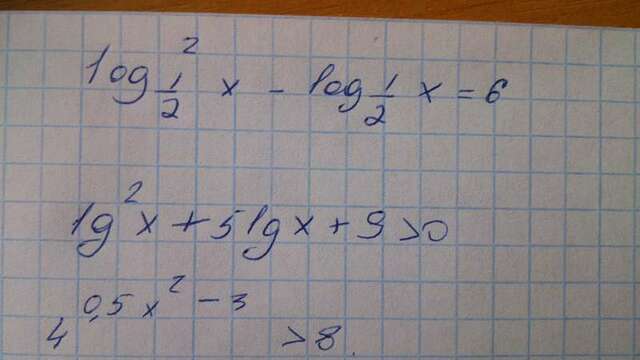 log²_{1/2} x - log_{1/2} x = 6
lg² x + 5 lg x + 9 > 0
4^{0,5x² - 3} > 8